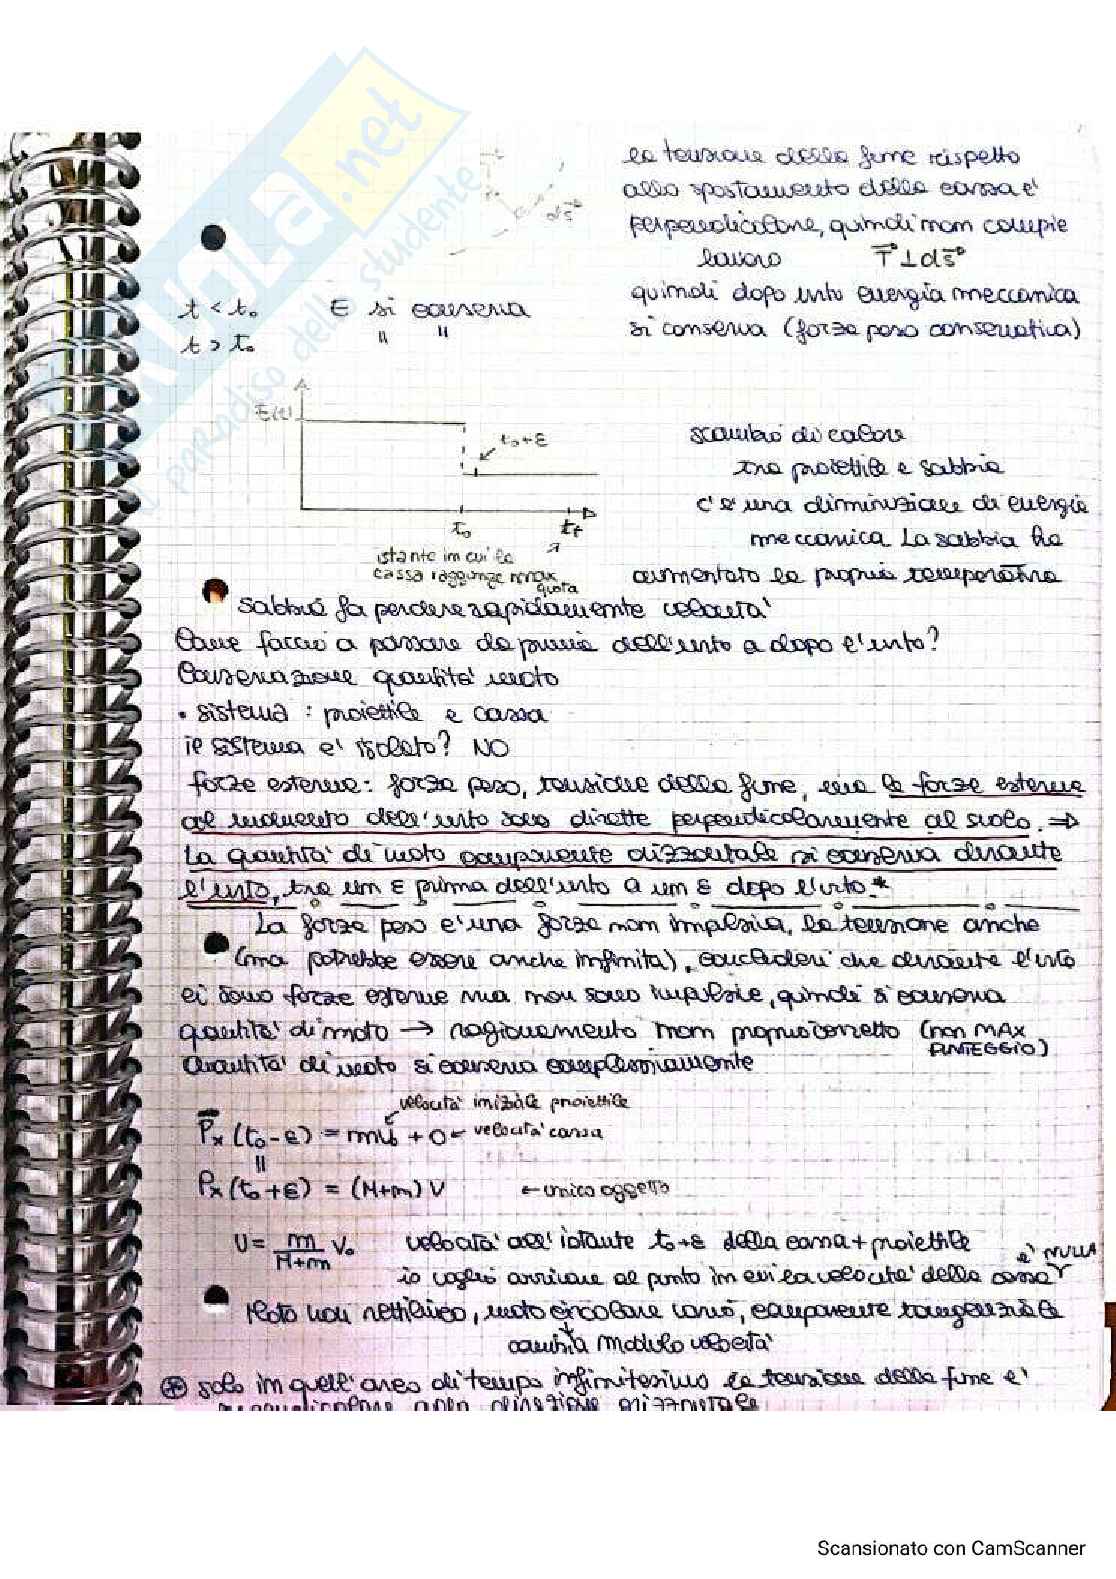 la tensione della fune rispetto
allo spostamento della cassa e'
perpendicolare, quindi non compie
lavoro T ⊥ ds
quindi dopo urto energia meccanica
si conserva (forza peso conservativa)
ds
t < t₀ E si conserva
t > t₀ " "
E(t)
t₀+ε
t₀
t_f
istante in cui la
cassa raggiunge max
quota
scambio di calore
tra proiettile e sabbia
c'è una diminuzione di energia
meccanica. La sabbia ha
aumentato la propria temperatura
sabbia fa perdere rapidamente velocita'
Come faccio a passare da prima dell'urto a dopo l'urto?
Conservazione quantita' moto
• sistema : proiettile e cassa
il sistema e' isolato? NO
forze esterne: forza peso, tensione della fune, ma le forze esterne
al momento dell'urto sono dirette perpendicolarmente al suolo. ⇒
La quantita' di moto componente orizzontale si conserva durante
l'urto, tra un ε prima dell'urto a un ε dopo l'urto *
La forza peso e' una forza non impulsiva, la tensione anche
(ma potrebbe essere anche infinita), concludere che durante l'urto
ci sono forze esterne ma non sono impulsive, quindi si conserva
quantita' di moto → ragionamento non proprio corretto (non MAX
PUNTEGGIO)
Quantita' di moto si conserva complessivamente
velocita' iniziale proiettile
Pₓ (t₀-ε) = mv₀ + 0 ← velocita' cassa
=
Pₓ (t₀+ε) = (M+m) V ← unico oggetto
V = m/(M+m) v₀ velocita' all'istante t₀+ε della cassa + proiettile
io voglio arrivare al punto in cui la velocita' della cassa e' NULLA
Moto non rettilineo, moto circolare vario, componente tangenziale
cambia modulo velocita'
⊛ solo in quell'arco di tempo infinitesimo la tensione della fune e'
perpendicolare alla direzione orizzontale
SKUOLA.net
il paradiso dello studente
Scansionato con CamScanner